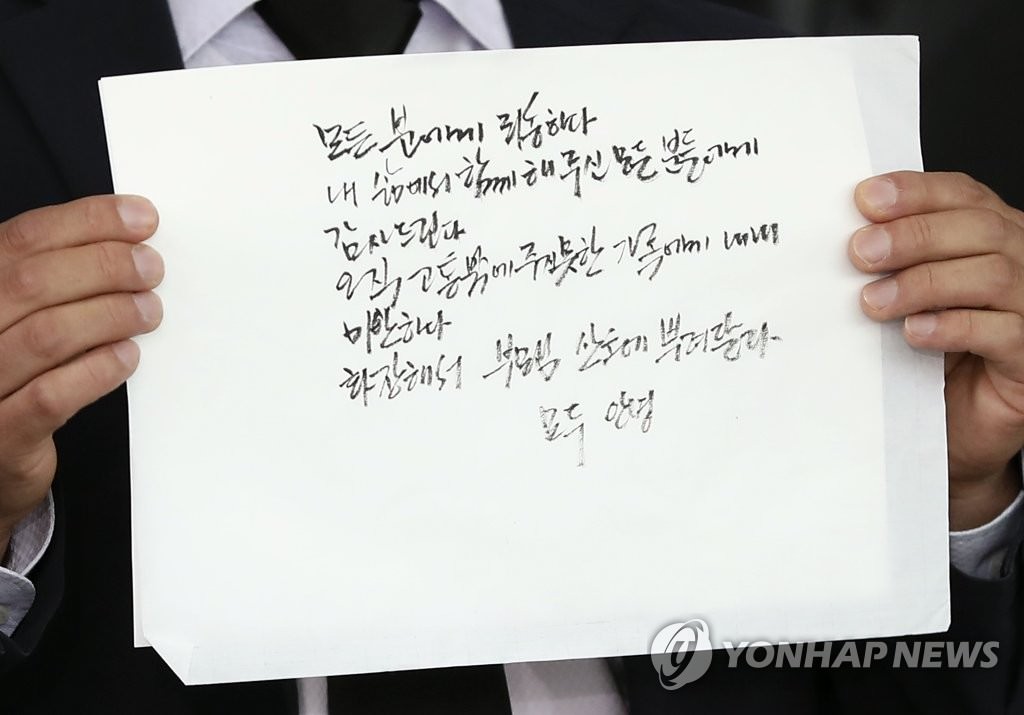 모든 분에게 죄송하다
내 삶에서 함께 해 주신 모든 분들에게
감사드린다
오직 고통밖에 주지 못한 가족에게 내내
미안하다
화장해서 부모님 산소에 뿌려달라.
모두 안녕
YONHAP NEWS